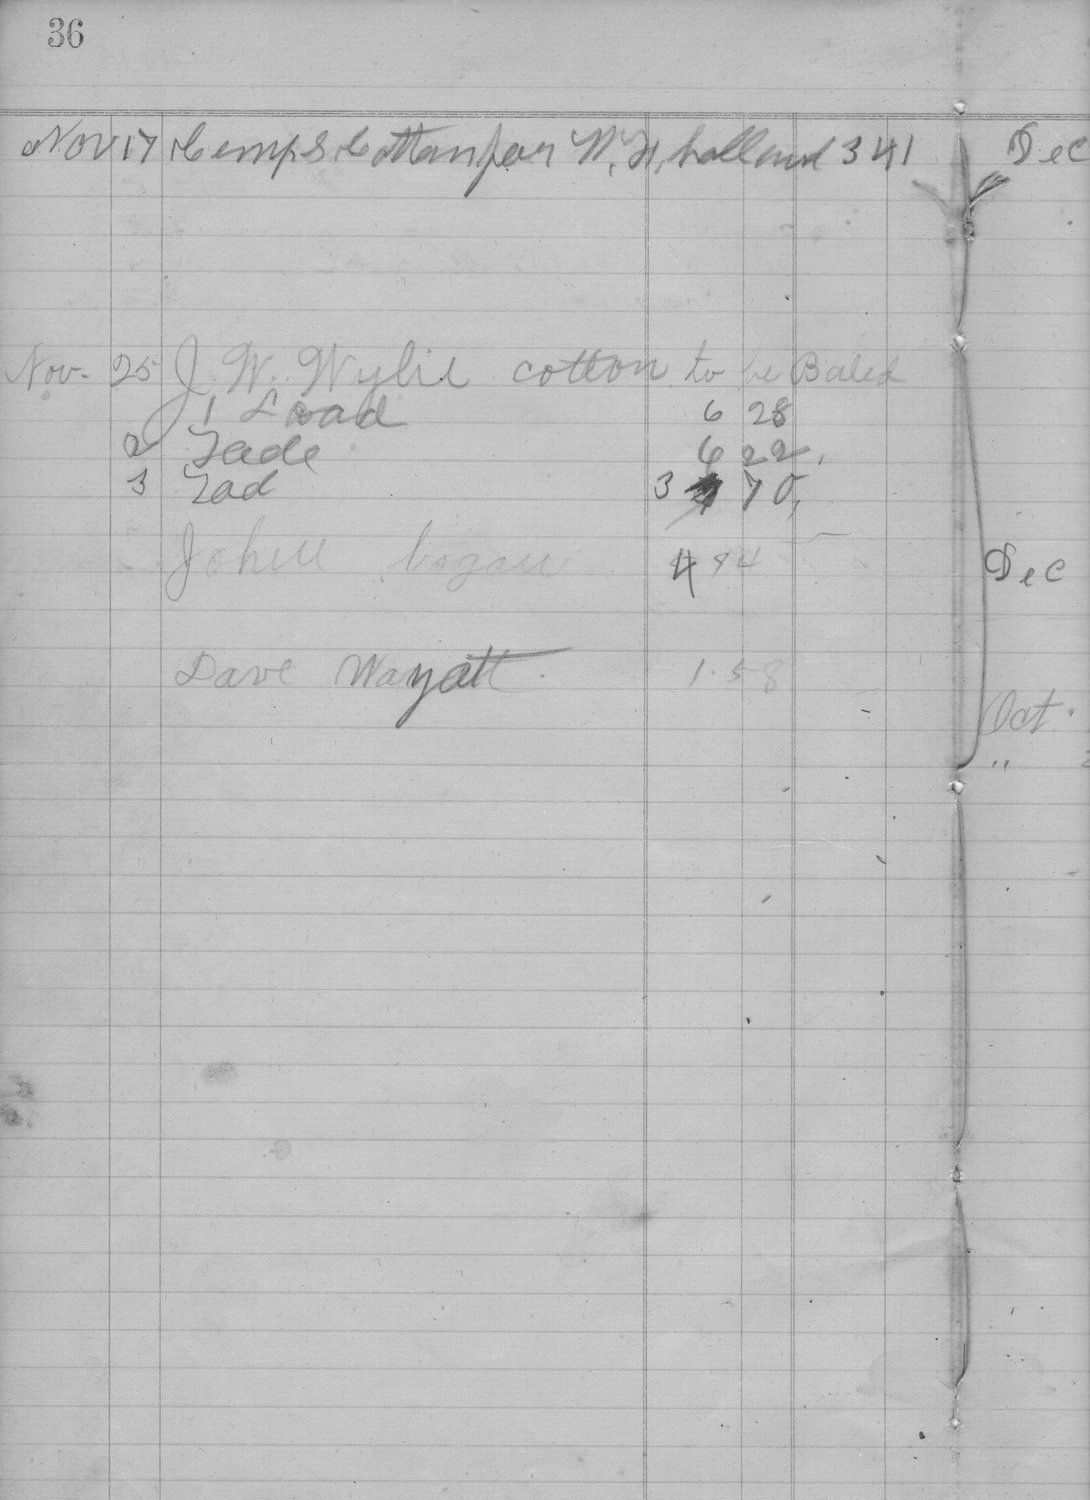 36
Nov 17 Cemps Cottan for W. H, holland 341
Nov- 25 J. W. Wylie cotton to be Baled
1 Load 6 28
2 Lade 6 22,
3 Lad 3 70,
John logan 4 94
Dave Wayatt. 1.58
Dec
Dec
Oct.
"